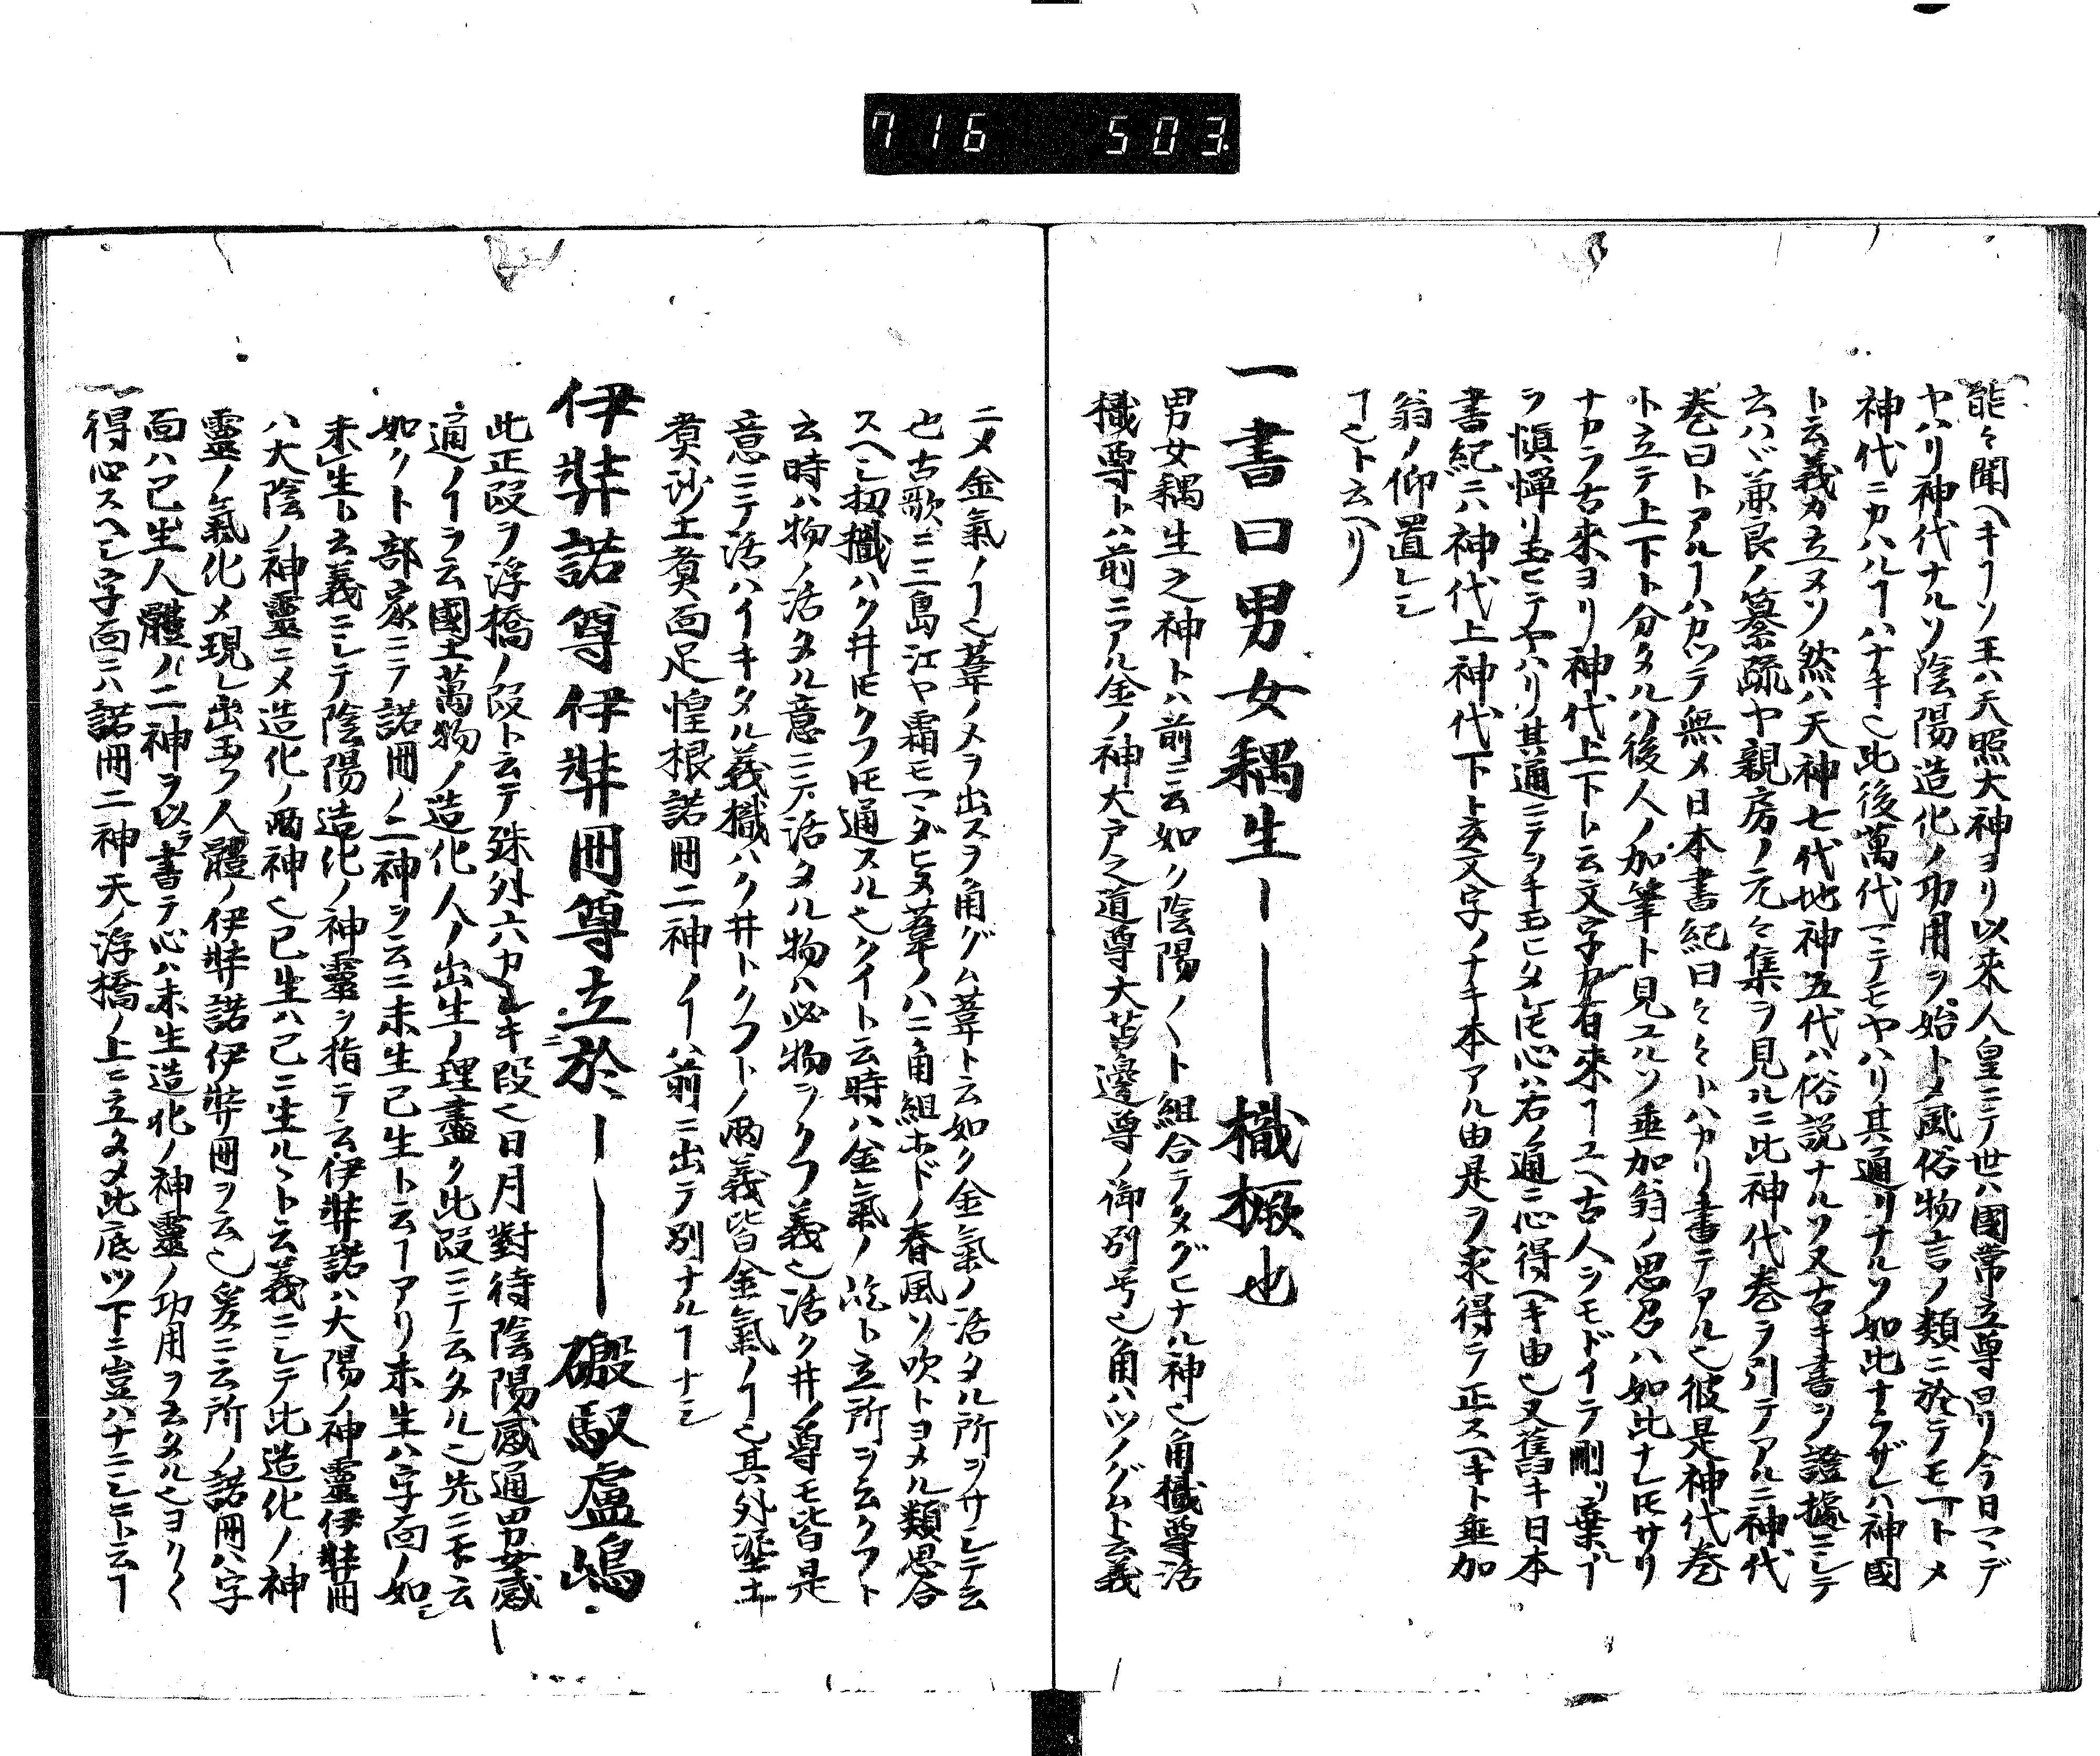 716 503
能々聞ヘキヿソ王ハ天照大神ヨリ以来人皇ニテ世ハ國常立尊ヨリ今日マデ
ヤハリ神代ナルソ陰陽造化ノ功用ヲ始トメ風俗物言ノ類ニ於テモ下トメ
神代ニカハルヿハナキ也此後萬代マテモヤハリ其通リナルソ如此ナラザレハ神國
ト云義カ立ヌソ然ハ天神七代地神五代ハ俗説ナルソ又古キ書ヲ證據ニシテ
云ハヾ兼良ノ纂疏ヤ親房ノ元々集ヲ見ルニ此神代巻ヲ引テアルニ神代
巻曰トアルヿハカツテ無メ日本書紀曰々々トハカリ書テアル也彼是神代巻
ト立テ上下ト分タルハ後人ノ加筆ト見ユルソ垂加翁ノ思召ハ如此ナレ𪜈サリ
ナカラ古来ヨリ神代上下ト云文字カ有来ヿユヘ古人ヲモドイテ刪リ棄ヿ
ヲ愼憚リ玉ヒテヤハリ其通ニテヲキ玉ヒタレ𪜈心ハ右ノ通ニ心得ヘキ由也又舊キ日本
書紀ニハ神代上神代下ト云文字ノナキ本アル由是ヲ求得テ正スヘキト垂加
翁ノ仰置レシ
ヿ也ト云ヘリ
一書曰男女耦生ー｜｜樴橛也
男女耦生之神トハ前ニ云如ク陰陽ノ〱ト組合テタグヒナル神也角樴尊活
樴尊トハ前ニアル金ノ神大戸之道尊大苫邊尊ノ御別号也角ハツノグムト云義
ニメ金氣ノヿ也葦ノメヲ出スヲ角グム葦ト云如ク金氣ノ活タル所ヲサシテ云
也古歌ニ三島江ヤ霜モマダヒヌ葦ノハニ角組ホドノ春風ソ吹トヨメル類思合
スヘシ扨樴ハク井𪜈クフ𪜈通スル也クイト云時ハ金氣ノ立所ヲ云クフト
云時ハ物ノ活タル意ニテ活タル物ハ必物ヲクフ義也活ク井ノ尊モ皆是
意ニテ活ハイキタル義樴ハク井トクフトノ兩義皆金氣ノヿ也其外埿土
煑沙土煑面足惶根諾冊二神ノヿハ前ニ出テ別ナルヿナシ
伊弉諾尊伊弉冊尊立於ー｜｜磤馭盧嶋
此正段ヲ浮橋ノ段ト云テ殊外六カシキ段也日月對待陰陽感通男女感
通ノヿヲ云國土萬物ノ造化人ノ出生ノ理盡ク此段ニテ云タル也先ニモ云
如クト部家ニテ諾冊ノ二神ヲ云ニ未生已生ト云ヿアリ未生ハ字面ノ如シ
未生ト云義ニシテ陰陽造化ノ神靈ヲ指テ云伊弉諾ハ大陽ノ神靈伊弉冊
ハ大陰ノ神靈ニメ造化ノ兩神也已生ハ已ニ生ルヽト云義ニシテ此造化ノ神
靈ノ氣化メ現レ出玉フ人體ノ伊弉諾伊弉冊ヲ云也爰ニ云所ノ諾冊ハ字
面ハ已生人體ノ二神ヲ以テ書テ心ハ未生造化ノ神靈ノ功用ヲ云タル也ヨク〱
得心スヘシ字面ニハ諾冊二神天ノ浮橋ノ上ニ立タメ此底ツ下ニ豈ハナニシニト云ヿ